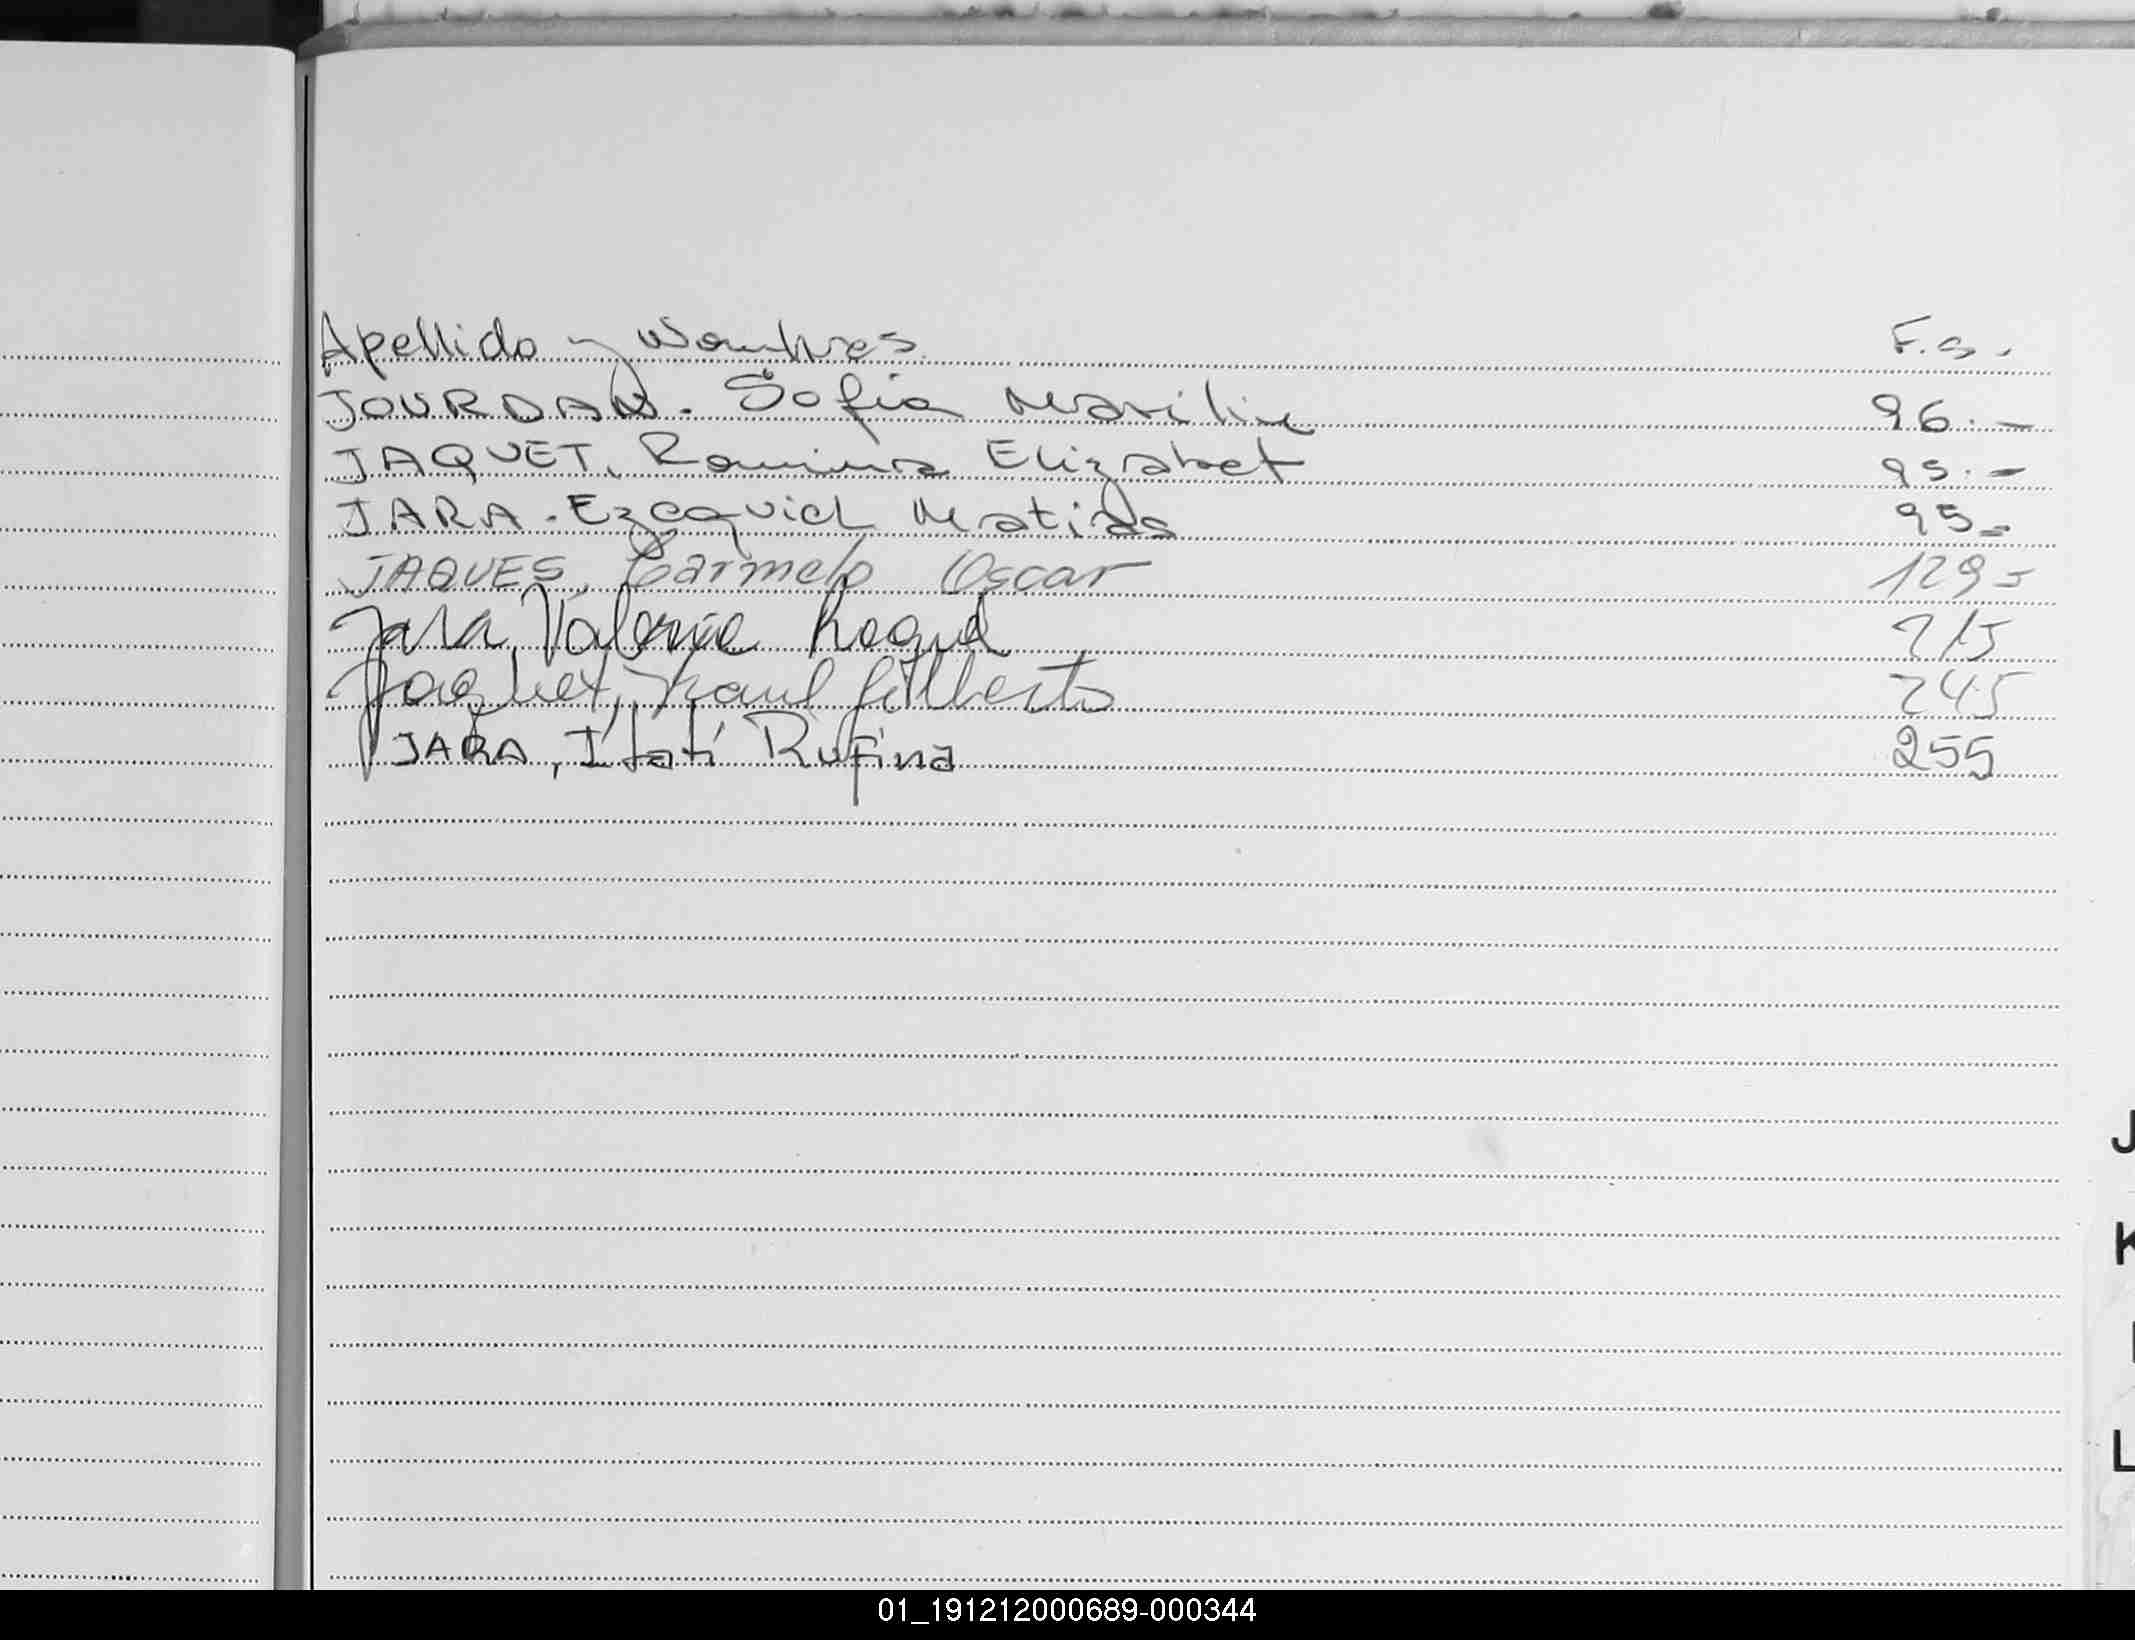 Apellido y Nombres F.s.
JOURDAN. Sofia Marilin 96.-
JAQUET, Romina Elizabet 95.-
JARA. Ezequiel Matias 95-
JAQUES, Carmelo Oscar 129-
Jara, Valeria Raquel 215
Jaquet, Raul Gilberto 245
JARA, Itatí Rufina 255
J
K
L
01_191212000689-000344